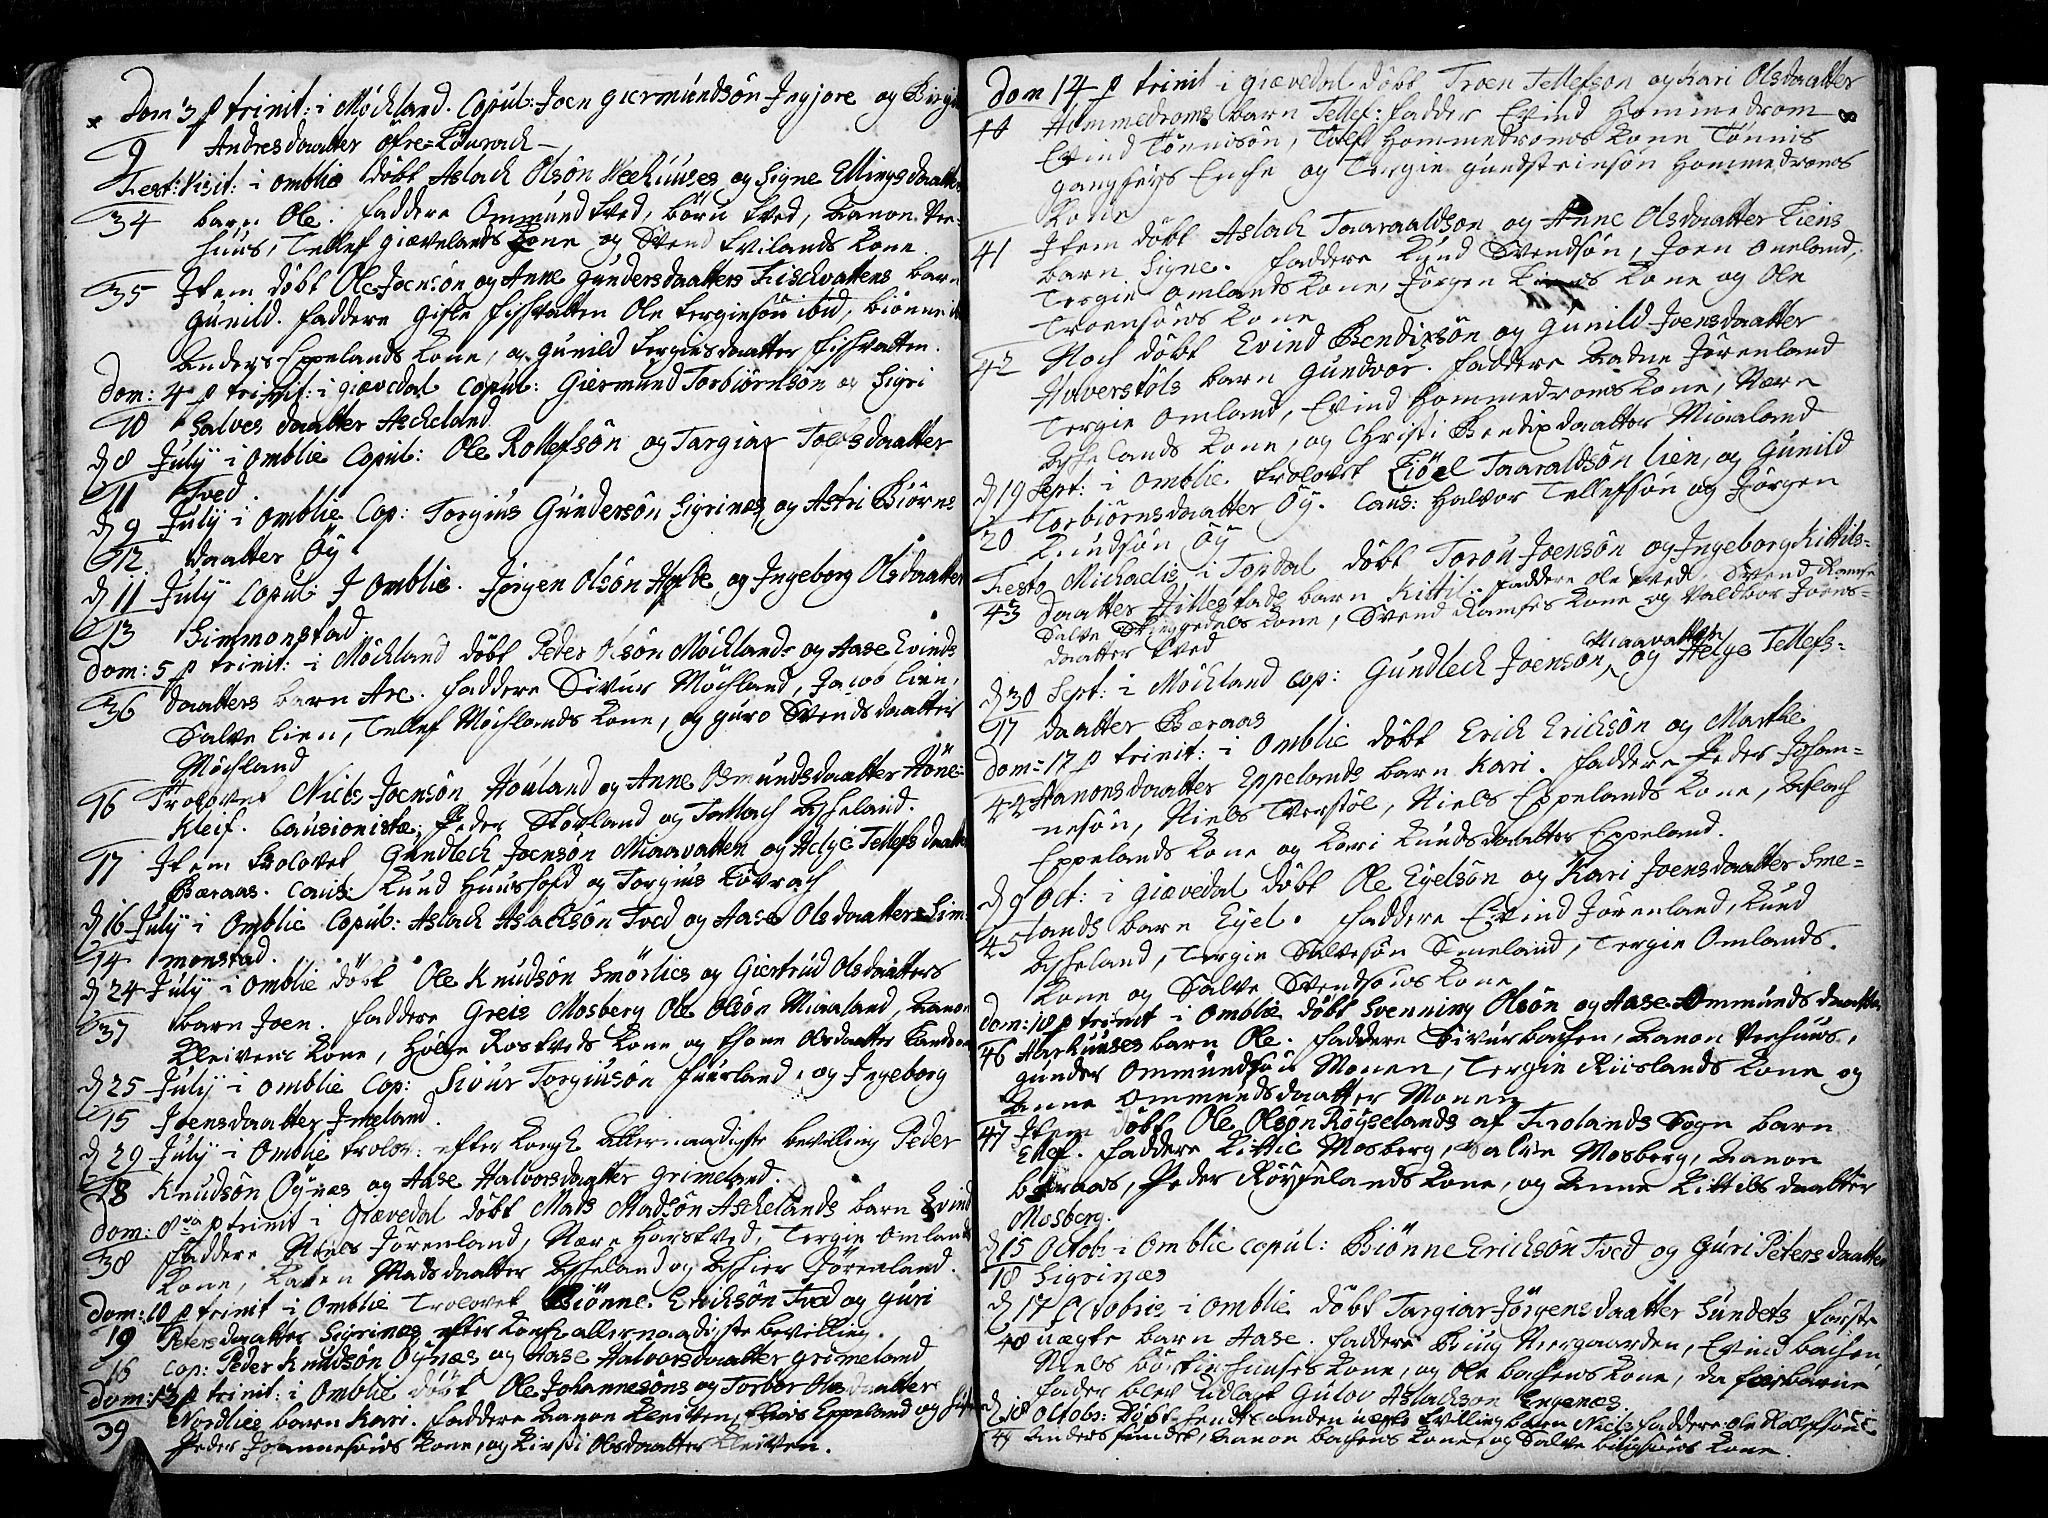 Dom 3 p trinit: i Mÿckland. Copul: Joen Giermundsön Ingjore og Birgit
9 Andresdaatter Öfre=
Fest: Visit: i Omblie döbt Aslach Olsön Veehuuses og Signe Ellingsdaatters
34 barn Ole. Faddere Ommund Tved, Börn Tved, Aanon Vee=
huus, Tellef Giævelands Kone og Svend Tvilands Kone
35 Item döbt Ole Joensön og Anne Gundersdaatters Fischvattens barn
Gunild. Faddere Gisle Fisvatten Ole Tergiesön ibid, Biönne ibid
Anders Eppelands Kone, og Gunild Tergiesdaatter Fisvatten.
Dom: 4 p trinit: i Giævedal Copul: Giermund Torbiörnsön og Sigri
10 Salvesdaatter Ascheland
d 8 Julÿ i Omblie Copul: Ole Rollefsön og Targiær Joensdaatter
11 Tved.
d 9 Julÿ i Omblie Cop: Torgius Gundersön Sigrinæs og Astri Biörns
12 daatter Öÿ.
d 11 Julÿ Copul: I Omblie. Jörgen Olsön og Ingeborg Olsdaatter
13 Simmonstad
Dom: 5 p trinit: i Mÿckland döbt Peder Olsön Mÿcklands og Aase Evinds
36 daatters barn Are. Faddere Sivur Mÿckland, Jacob Lien,
Salve Lien, Tellef Mÿcklands Kone, og Guro Svendsdaatter
Mÿckland
16 Trolovet Niels Joensön Houland og Anne Osmundsdaatter Höne=
Kleif. Causionistæ; Peder Skovland og Tallach Ascheland.
17 Item Trolovet Gundlech Joensön Miaavatten og Helge Tellefsdaatter
Bæraas. Caus: Knud Huurshofd og Torgius
d 16 Julÿ i Omblie Copul: Aslach Aslachsön Tved og Aase Olsdaatter Sim=
14 monstad.
d 24 Julÿ i Omblie döbt Ole Knudsön Smörlies og Giertrud Olsdaatters
37 barn Joen. Faddere Greis Mosberg Ole Olsön Miaaland, Aanon
Kleivens Kone, Helge Rostveds Kone og Thone Olsdaatter
d 25 Julÿ i Omblie Cop: Sivur Torgiusön Fuurland, og Ingeborg
15 Joensdaatter Imeland.
d 29 Julÿ i Omblie trolov: efter Kongl Allernaadigste bevilling Peder
18 Knudsön Öÿnæs og Aase Halvorsdaatter Grimeland.
Dom: 8va p trinit i Giævedal döbt Mads Madsön Aschelands barn Evind
38 Faddere Niels Jörenland, Nære Harstved, Tergie Omlands
Kone, Karen Madsdaatter Ascheland og Jörenland.
Dom: 10 p trinit i Omblie Trolovet Biönne Erichsön Tved og Guri
19 Petersdaatter Sigrinæs efter Kongl allernaadigste bevilling.
16 Cop: Peder Knudsön Öÿnæs og Aase Halvorsdaatter Grimeland
Dom: 13 p trinit: i Omblie döbt Ole Johannesöns og Torbor Olsdaatters
39 Nordlies barn Kari. Faddere Aanon Kleiven, Elias Eppeland og
Peder Johannesöns Kone, og Kirsti Olsdaatter Kleiven.
Dom 14 p trinit i Giævedal döbt Troen Tellefsön og Kari Olsdaatter
40 Hommedroms barn Tellef: Fadder Evind Hommedrom
Evind Tönnisön, Tellef Hommedroms Kone Tönnis
Enche og Tergie Gundsteinsön Hommedroms
Kone
41 Item döbt Aslach Taaraaldsön og Anne Olsdaatter Liens
barn Signe. Faddere Knud Svendsön, Joen Oneland,
Tergie Omlands Kone, Jörgen Kone og Ole
Troensöns Kone
42 Noch döbt Evind Bendixsön og Gunild Joensdaatter
Hulverstöls barn Gundvor. Faddere Aadne Jörenland
Tergie Omland, Evind Hommedroms Kone, Nære
Aschelands Kone, og Christi Bendixdaatter Miaaland
d 19 Sept: i Omblie trolovet Eiöel Taaraldsön Lien, og Gunild
20 Torbiörnsdaatter Öÿ. Caus: Halvor Tellefsön og Jörgen
Knudsön Öÿ
Festo Michaelis i Topdal döbt Toroú Joensön og Ingeborg Kittils=
43 daatter Hillestads barn Kittil. Faddere Ole Tved, Svend Ramse
Salve Skieggedals Kone, Svend Ramses Kone og Valdbor Joens=
daatter Tved
d 30 Sept: i Mÿckland Cop: Gundlech Joensön Miaavatten og Helge Tellefs=
17 daatter Bæraas
Dom: 17 p trinit: i Omblie döbt Erich Erichsön og Marthe
44 Aanonsdaatter Eppelands barn Kari. Faddere Peder Johan=
nesön, Niels Tverstöl, Niels Eppelands Kone, Aslach
Eppelands Kone og Kari Knudsdaatter Eppeland.
d 9 Oct: i Giævedal döbt Ole Eÿelsön og Kari Joensdaatter Sme=
45 lands barn Eÿel. Faddere Evind Jörenland, Knud
Ascheland, Tergie Salvesön Smeland, Tergie Omlands
Kone og Salve Svendsöns Kone
Dom: 18 p trinit i Omblie döbt Svenning Olsön og Aase Ommundsdaatter
46 barn Ole. Faddere Sivur Bachen, Aanon Veehuus,
Gunder Ommundsön Monen, Tergie Riislands Kone og
Anne Ommundsdaatter Monen
47 Item döbt Ole Olsön Röÿselands af Frolands Sogn barn
Ellef. Faddere Kittil Mosberg, Salve Mosberg, Aanon
Bæraas, Peder Röÿselands Kone, og Anne Kittilsdaatter
Mosberg.
d 15 Octob: i Omblie Copul: Biönne Erichsön Tved og Guri Petersdaatter
18 Sigrinæs
d 17 Octobris i Omblie döbt Targiær Jörgensdaatter Sundets förste
48 uægte barn Aase. Faddere Biug Nergaarden, Evind Bachen
Niels Kone, og Ole Bachens Kone, da
Fader blev Udlagt Gulov Aslachson Engenæs.
d 18 Octob: Döpt anden uægte Tvilling barn Niels Faddere: Ole Rollefsön
49 Anders Sundet, Aanon Bachens Kone og Salve Kone.